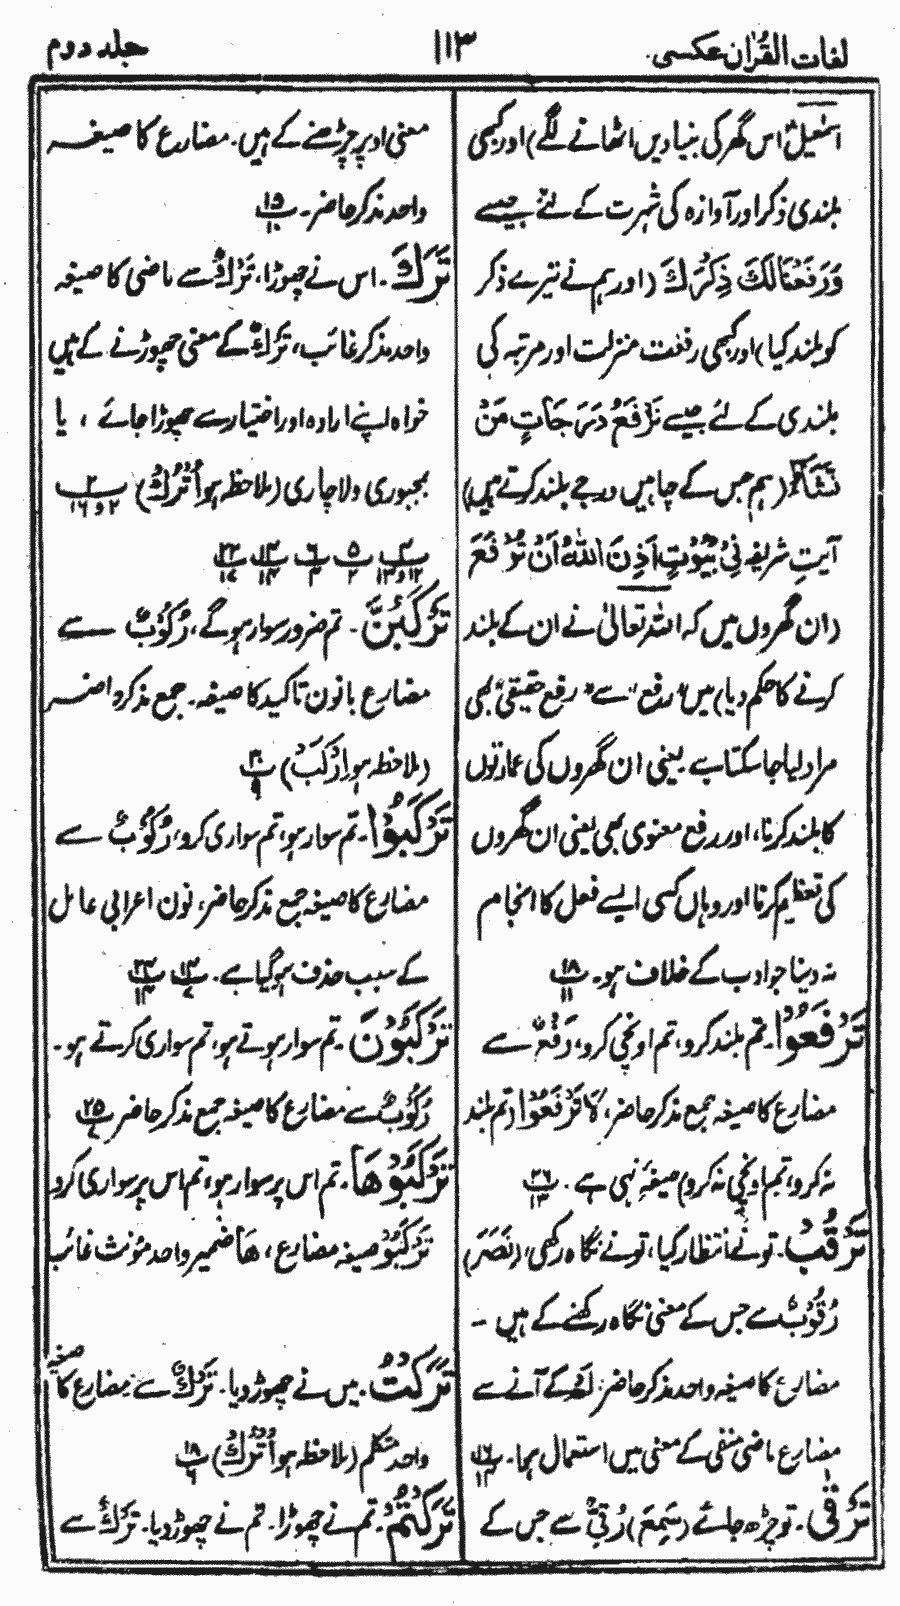 لغات القرآن عکسی
۱۱۳
جلد دوم
اسمٰعیلؑ اس گھر کی بنیادیں اٹھانے لگے) اور کبھی
بلندی ذکر اور آوازہ کی شہرت کے لئے جیسے
وَرَفَعْنَا لَكَ ذِكْرَكَ (اور ہم نے تیرے ذکر
کو بلند کیا) اور کبھی رفعت منزلت اور مرتبہ کی
بلندی کے لئے جیسے نَرْفَعُ دَرَجَاتٍ مَنْ
نَشَاءُ (ہم جس کے چاہیں درجے بلند کرتے ہیں)
آیتِ شریفہ فِیْ بُیُوْتٍ اَذِنَ اللّٰهُ اَنْ تُرْفَعَ
(ان گھروں میں کہ اللہ تعالیٰ نے ان کے بلند
کرنے کا حکم دیا) میں "رفع" سے "رفع حقیقی" بھی
مراد لیا جا سکتا ہے۔ یعنی ان گھروں کی عمارتوں
کا بلند کرنا، اور رفع معنوی بھی یعنی ان گھروں
کی تعظیم کرنا اور وہاں کسی ایسے فعل کا انجام
نہ دینا جو ادب کے خلاف ہو۔ ۱۸ ۱۱
تَرْفَعُوْا۔ تم بلند کرو، تم اونچی کرو، رَفْعٌ سے
مضارع کا صیغہ جمع مذکر حاضر، لَا تَرْفَعُوْا (تم بلند
نہ کرو، تم اونچی نہ کرو) صیغۂ نہی ہے۔ ۲۶ ۱۳
تَرْقُبْ۔ تو نے انتظار کیا، تو نے نگاہ رکھی، (نَصَرَ)
رُقُوْبٌ سے جس کے معنی نگاہ رکھنے کے ہیں۔
مضارع کا صیغہ واحد مذکر حاضر: لَمْ کے آنے سے
مضارع ماضی منفی کے معنی میں استعمال ہوا۔ ۱۶ ۱۴
تَرْقٰی۔ تو چڑھ جائے (سَمِعَ) رُقِیٌّ سے جس کے
معنی اوپر چڑھنے کے ہیں۔ مضارع کا صیغہ
واحد مذکر حاضر۔ ۱۵ ۱۰
تَرَكَ۔ اس نے چھوڑا، تَرْكٌ سے ماضی کا صیغہ
واحد مذکر غائب، تَرْكٌ کے معنی چھوڑنے کے ہیں
خواہ اپنے ارادہ اور اختیار سے چھوڑا جائے، یا
بمجبوری و لاچاری (ملاحظہ ہو اُتْرُكْ) ۲ ۲ و ۱۶
۳ ۱۲ و ۱۳ ۵ ۲ ۶ ۳ ۱۴ ۱۴ ۲۲ ۱۷
تَرْكَبُنَّ۔ تم ضرور سوار ہو گے، رُكُوْبٌ سے
مضارع بانون تاکید کا صیغہ۔ جمع مذکر حاضر
(ملاحظہ ہو اِرْكَبْ) ۳۰ ۹
تَرْكَبُوْا۔ تم سوار ہو، تم سواری کرو، رُكُوْبٌ سے
مضارع کا صیغہ جمع مذکر حاضر، نون اعرابی عامل
کے سبب حذف ہو گیا ہے۔ ۱۴ ۷ ۲۴ ۱۴
تَرْكَبُوْنَ۔ تم سوار ہوتے ہو، تم سواری کرتے ہو۔
رُكُوْبٌ سے مضارع کا صیغہ جمع مذکر حاضر ۲۵ ۷
تَرْكَبُوْهَا۔ تم اس پر سوار ہو، تم اس پر سواری کرو
تَرْكَبُوْ صیغہ مضارع، هَا ضمیر واحد مؤنث غائب
تَرَكْتُ۔ میں نے چھوڑ دیا۔ تَرْكٌ سے مضارع کا صیغہ
واحد متکلم (ملاحظہ ہو اُتْرُكْ) ۱۸ ۶
تَرَكْتُمْ۔ تم نے چھوڑا۔ تم نے چھوڑ دیا۔ تَرْكٌ سے